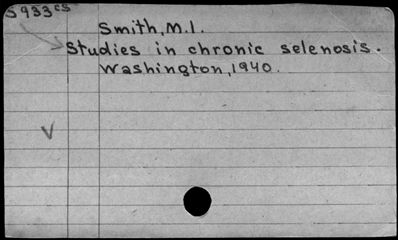 S933cs
Smith, M.I.
Studies in chronic selenosis.
Washington, 1940.
V